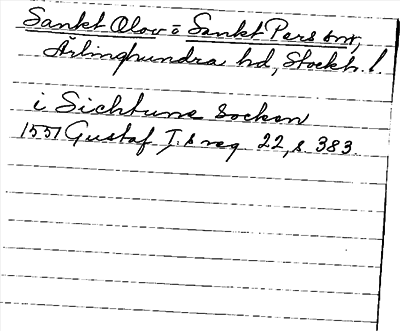 Sankt Olov o Sankt Pers snr,
Ärlinghundra hd, Stockh. l.
i Sichtuna Socken
1551 Gustaf I.s reg 22, s 383.